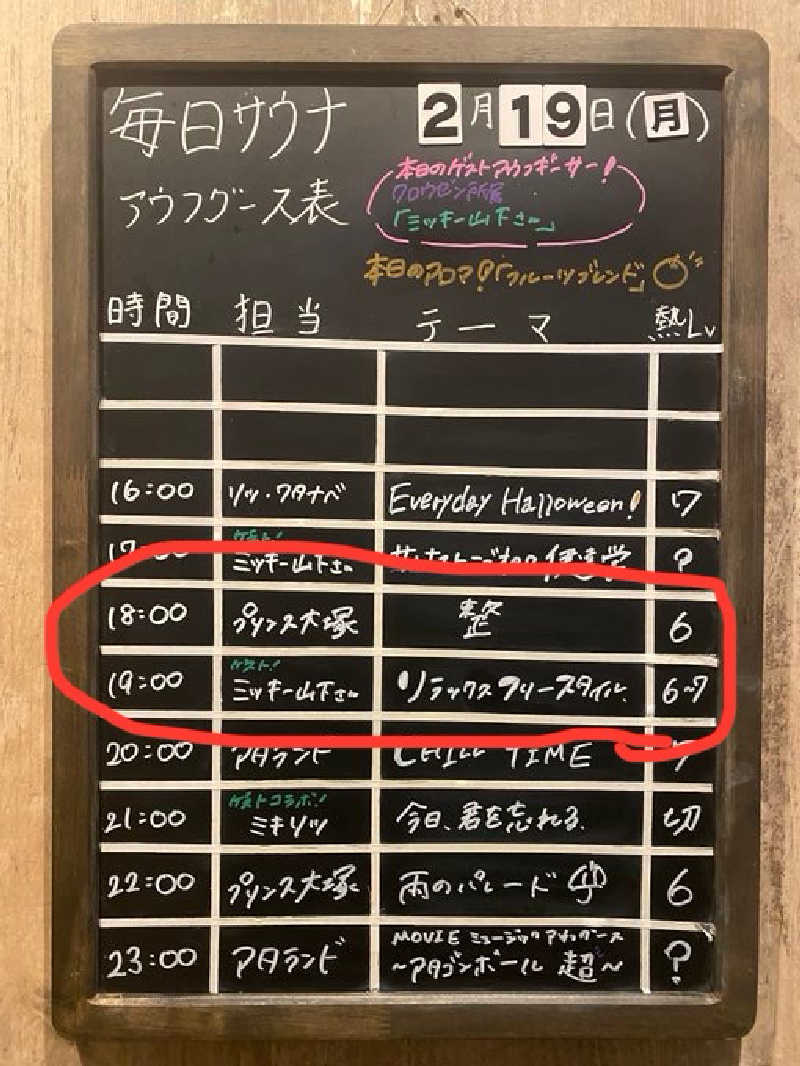 毎日サウナ 2月19日(月)
アウフグース表
本日のゲストアウフギーサー!
クロウゼン所属
「ミッキー山下さん」
本日のアロマ!「フルーツブレンド」
時間 担当 テーマ 熱Lv
16:00 リッ・ワタナベ Everyday Halloween! 7
ゲスト!
17:00 ミッキー山下さん ?
18:00 プリンス大塚 整 6
ゲスト!
19:00 ミッキー山下さん リラックスフリースタイル 6~7
20:00 アタランド CHILL TIME 7
ゲストコラボ!
21:00 ミキリッ 今日、君を忘れる。 切
22:00 プリンス大塚 雨のパレード 6
MOVIE ミュージックアウフグース
23:00 アタランド ~アタゴンボール 超~ ?